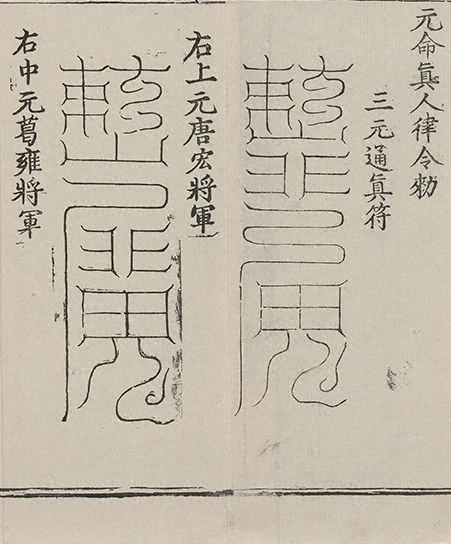 元命眞人律令勑
三元通眞符
右上元唐宏將軍
右中元葛雍將軍